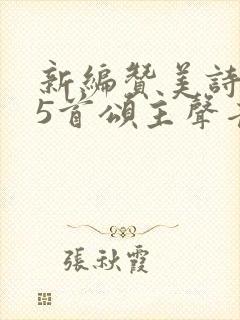 新編贊美詩
5首頌主聲
張秋霞